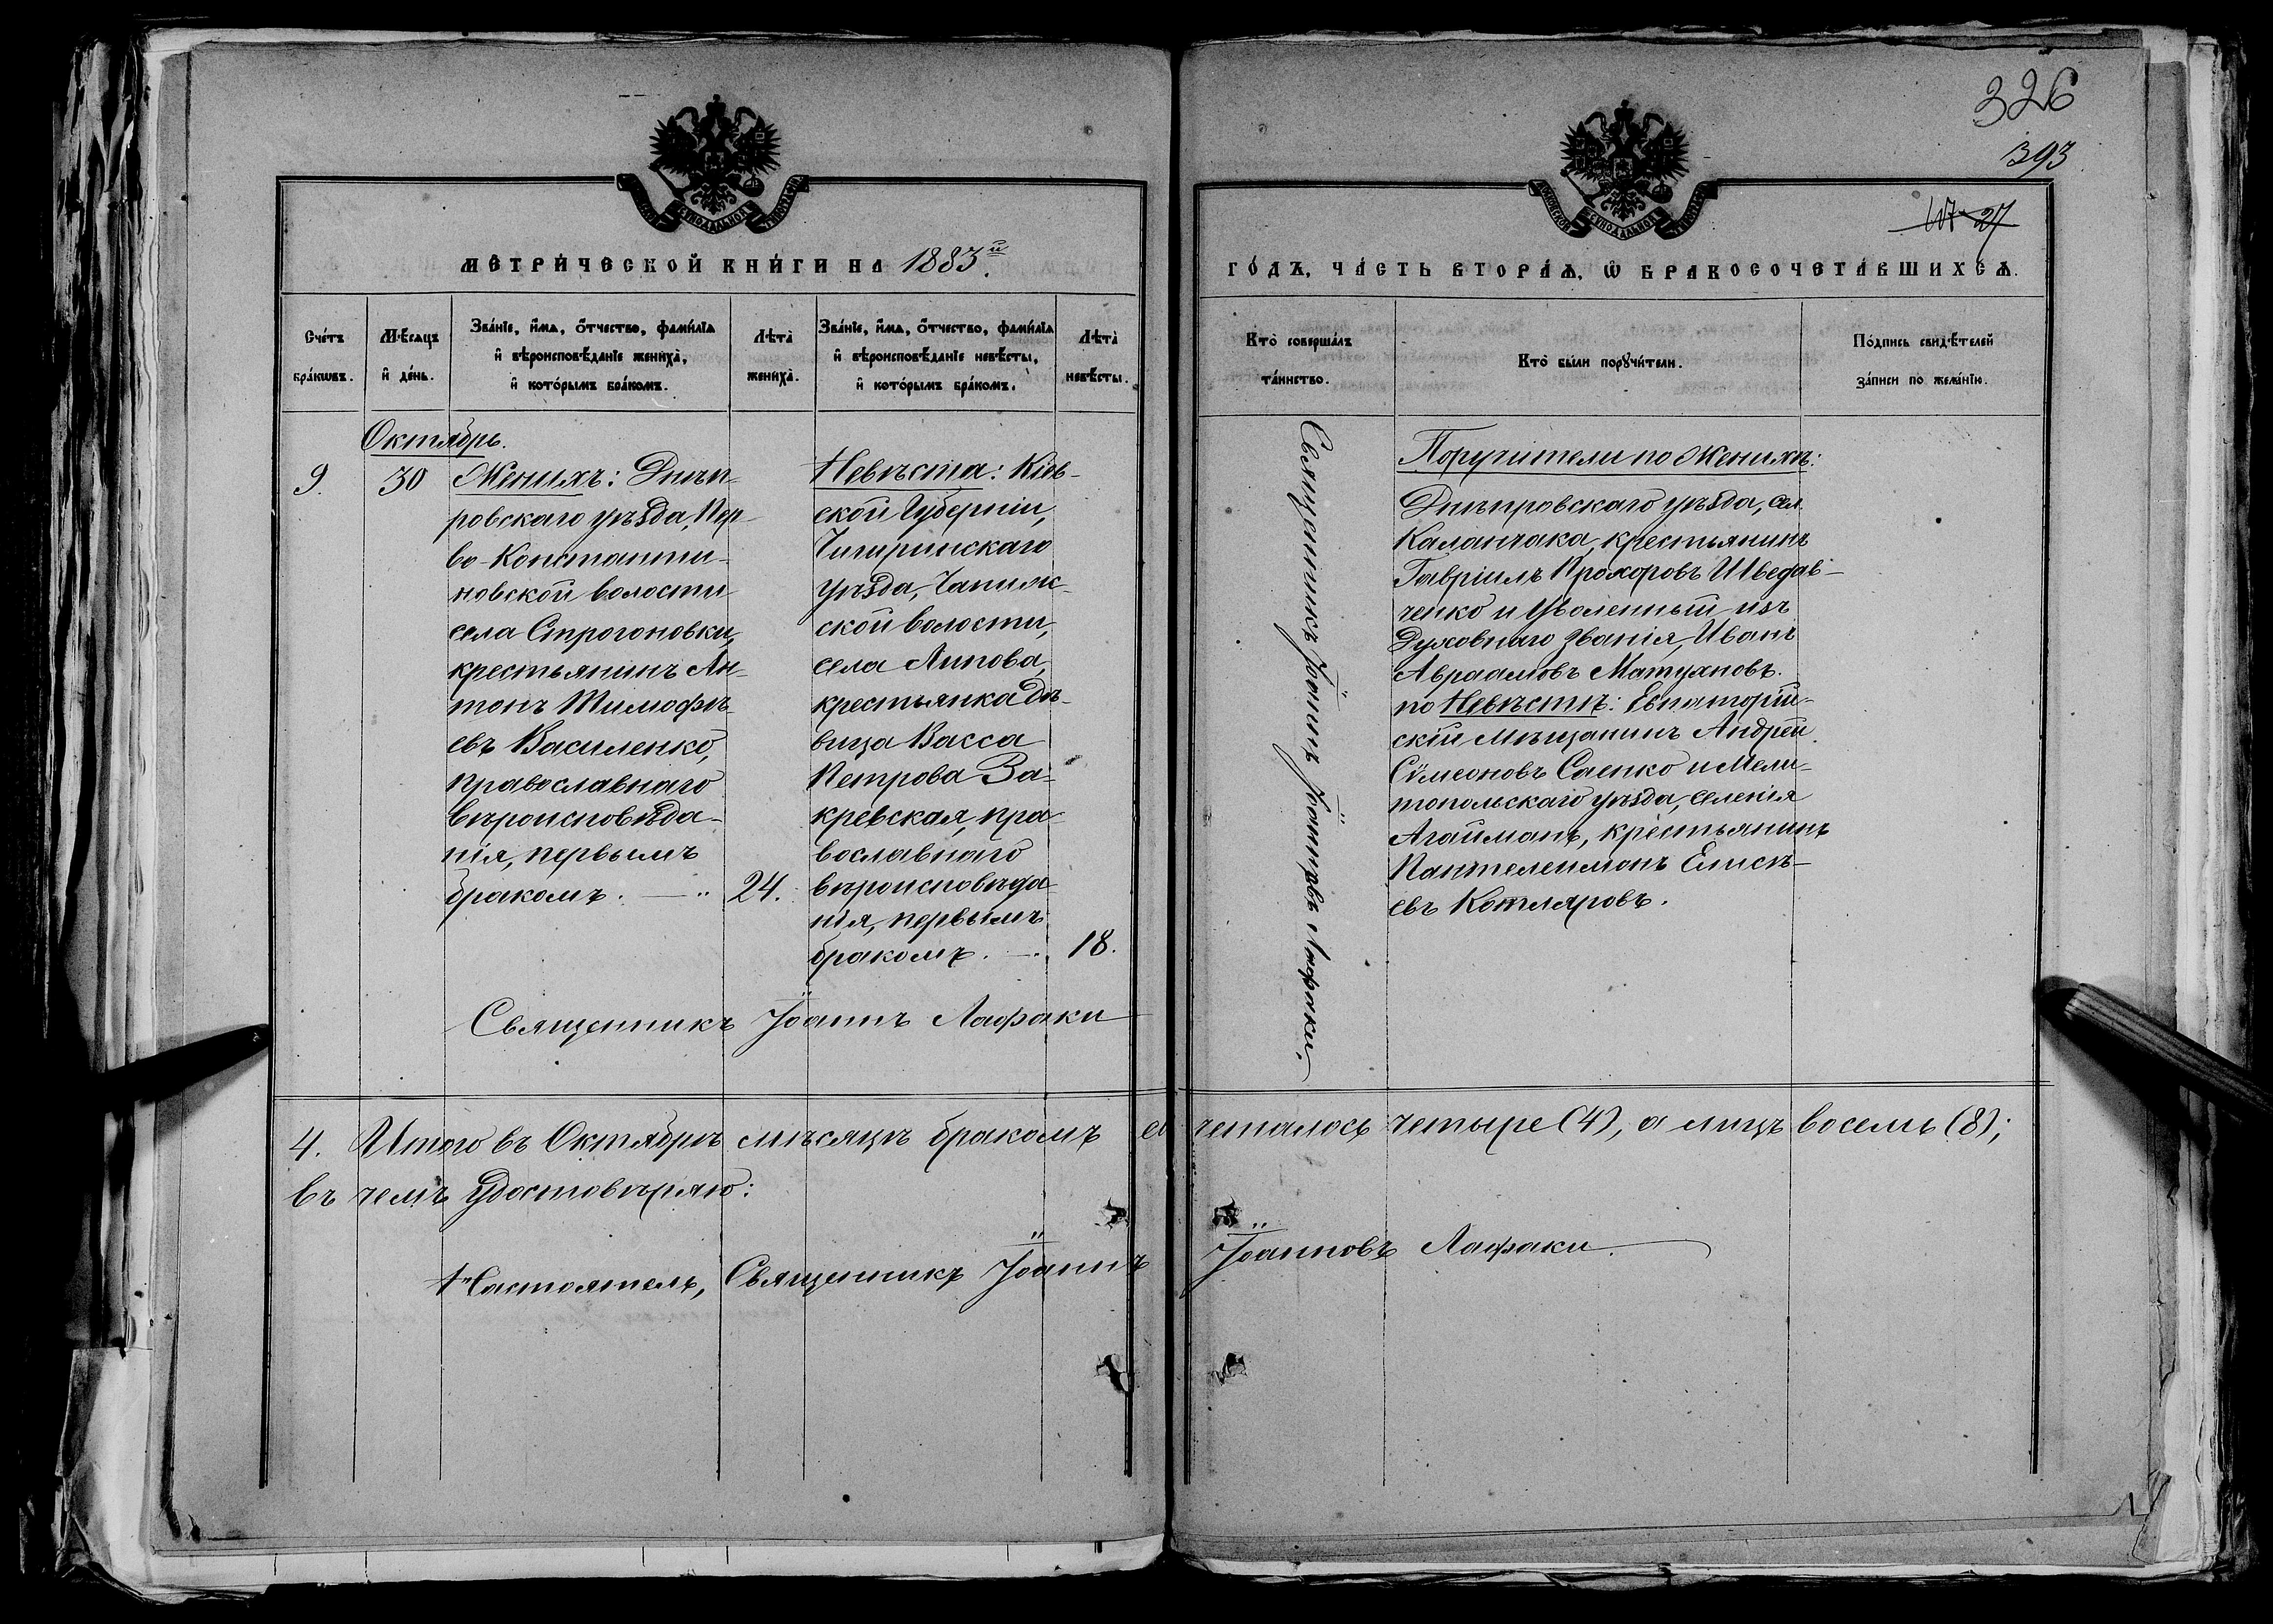 326
393
МЕТРИ́ЧЕСКОЙ КНИ́ГИ НА 1883й.
ГО́ДЪ, ЧА́СТЬ ВТОРА́Ѧ, Ѽ БРАКОСОЧЕТА́ВШИХСѦ.
Сче́тъ бра́кѡвъ.
Мѣ́сѧцъ и҆ де́нь.
Зва́нїе, и҆́мѧ, ѻ҆́тчество, фами́лїѧ и҆ вѣроисповѣ́данїе жениха̀, и҆ кото́рымъ бра́комъ.
Лѣта̀ жениха̀.
Зва́нїе, и҆́мѧ, ѻ҆́тчество, фами́лїѧ и҆ вѣроисповѣ́данїе невѣ́сты, и҆ кото́рымъ бра́комъ.
Лѣта̀ невѣ́сты.
Кто̀ соверша́лъ та́инство.
Кто̀ бы́ли порꙋчи́тели.
По́дпись свидѣ́телей за́писи по жела́нїю.
Октябрь.
9.
30
Женихъ: Днѣп-
ровскаго уѣзда, Пер-
во-Константи-
новской волости
села Строгоновки,
крестьянинъ Ан-
тонъ Тимофѣ-
евъ Василенко,
православнаго
вѣроисповѣда-
нія, первымъ
бракомъ. — "
24.
Невѣста: Кіев-
ской Губерніи,
Чигиринскаго
уѣзда, Чаплис-
ской волости,
села Липова,
крестьянка дѣ-
вица Васса
Петрова За-
кревская, пра-
вославнаго
вѣроисповѣда-
нія, первымъ
бракомъ. —.
18.
Священникъ Іоаннъ Лафаки
Священникъ Іоаннъ Іоанновъ Лафаки;
Поручители по Женихѣ:
Днѣпровскаго уѣзда, сел.
Каланчака, крестьянинъ
Гавріилъ Прохоровъ Шведов-
ченко и уволенный изъ
Духовнаго званія, Иванъ
Авраамовъ Матухновъ.
по Невѣстѣ: Евпаторій-
скій мѣщанинъ Андрей
Сѵмеоновъ Саенко и Мели-
топольскаго уѣзда, селенія
Агаймапъ, крестьянинъ
Пантелеимонъ Елисѣ-
евъ Котляровъ.
4. Итого въ Октябрѣ мѣсяцѣ бракомъ со четалось четыре (4), а лицъ восемь (8);
въ чемъ удостовѣряю:
Настоятель, Священникъ Іоаннъ Іоанновъ Лафаки.